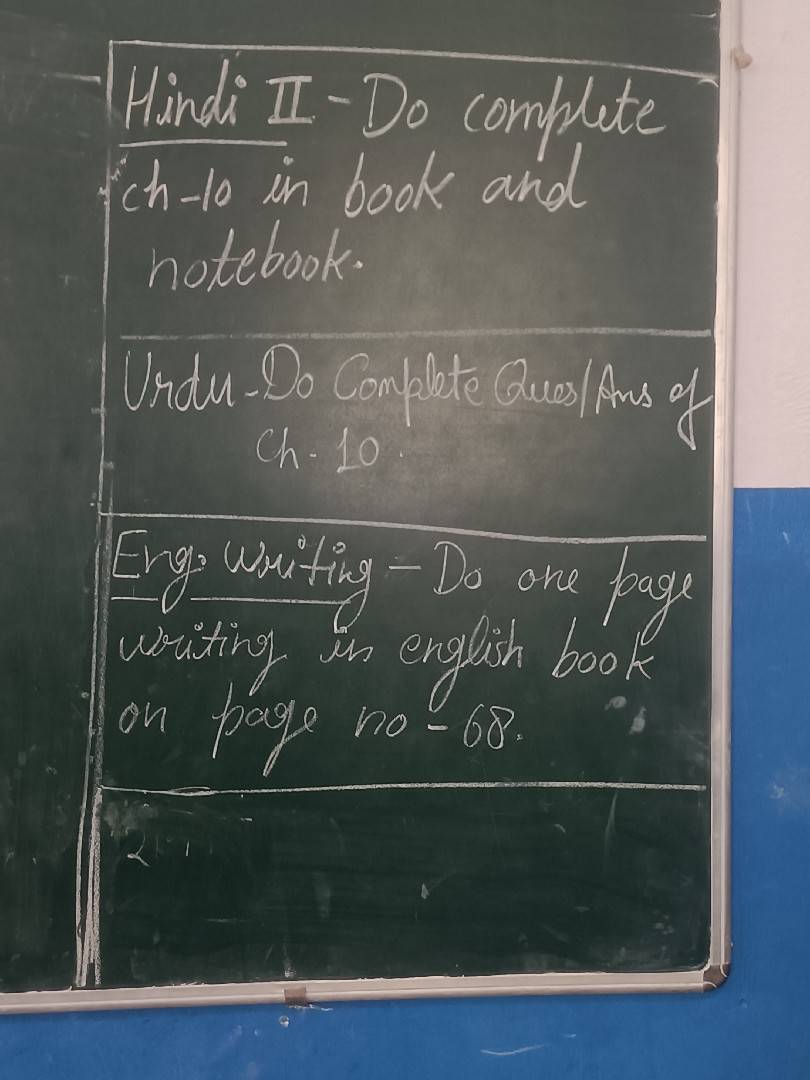 Hindi II - Do complete
ch-10 in book and
notebook.
Urdu - Do Complete Ques/Ans of
Ch - 10.
Eng. Writing - Do one page
writing in english book
on page no - 68.